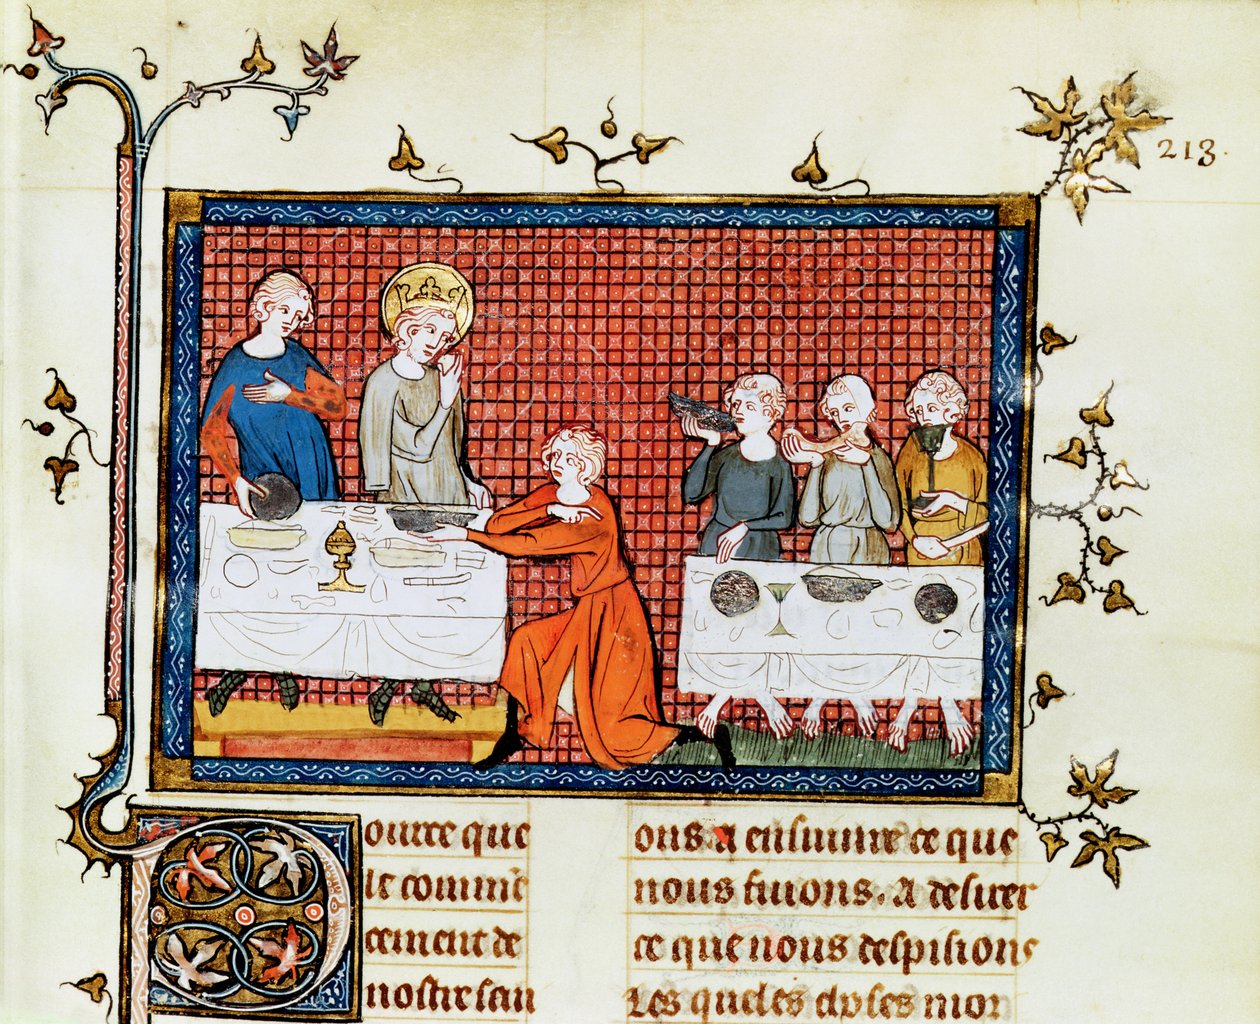 213.
Pource que
le commē
cement de
nostre sau
ons a ensuiure ce que
nous fuions. a desirer
ce que nous despisions
Les queles choses mon